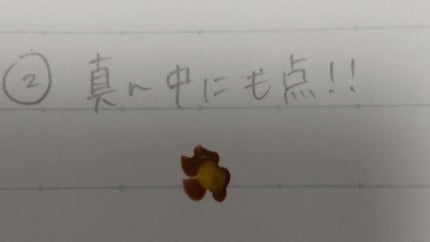 ② 真ん中にも点!!